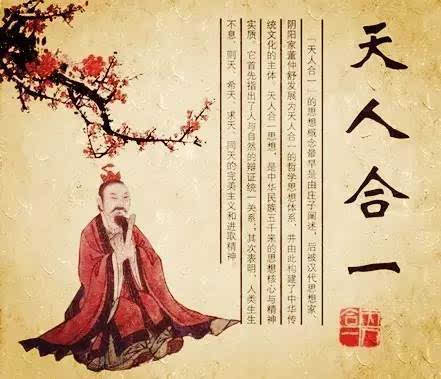 天人合一
「天人合一」的思想概念最早是由庄子阐述，后被汉代思想家、
阴阳家董仲舒发展为天人合一的哲学思想体系，并由此构建了中华传
统文化的主体。天人合一思想，是中华民族五千来的思想核心与精神
实质。它首先指出了人与自然的辩证统一关系；其次表明，人类生生
不息、则天、希天、求天、同天的完美主义和进取精神
天人
合一